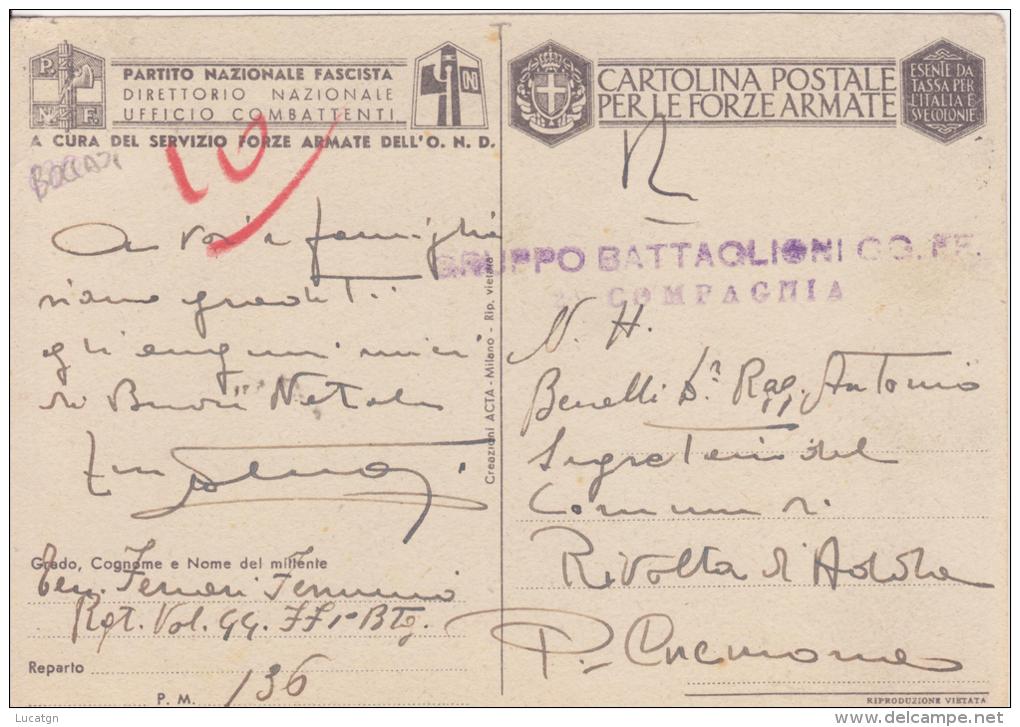 P. N. F.
PARTITO NAZIONALE FASCISTA
DIRETTORIO NAZIONALE
UFFICIO COMBATTENTI
A CURA DEL SERVIZIO FORZE ARMATE DELL'O. N. D.
CARTOLINA POSTALE
PER LE FORZE ARMATE
ESENTE DA
TASSA PER
L'ITALIA E
SVE COLONIE
10
A voi e famiglia
siano graditi
gli auguri miei
di Buon Natale
Creazioni ACTA - Milano - Rip. vietata
GRUPPO BATTAGLIONI GG. FF.
COMPAGNIA
N. H.
Benelli Dr. Rag. Antonio
Segretario del
Comune di
Rivolta d'Adda
P. Cremona
Grado, Cognome e Nome del mittente
Ten. Ferrari
Rgt. Vol. GG. FF. 1° Btg.
Reparto
P. M. 136
RIPRODUZIONE VIETATA
Lucatgn
delcampe.net